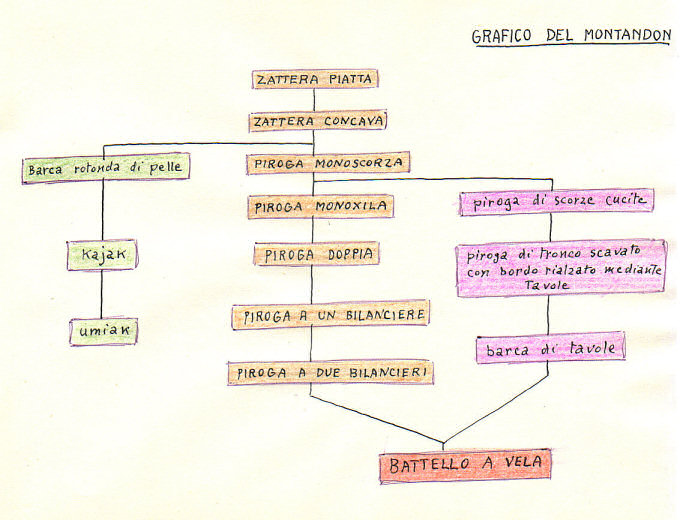 GRAFICO DEL MONTANDON
ZATTERA PIATTA
ZATTERA CONCAVA
Barca rotonda di pelle
PIROGA MONOSCORZA
PIROGA MONOXILA
piroga di scorze cucite
kajak
PIROGA DOPPIA
piroga di tronco scavato
con bordo rialzato mediante
tavole
umiak
PIROGA A UN BILANCIERE
barca di tavole
PIROGA A DUE BILANCIERI
BATTELLO A VELA